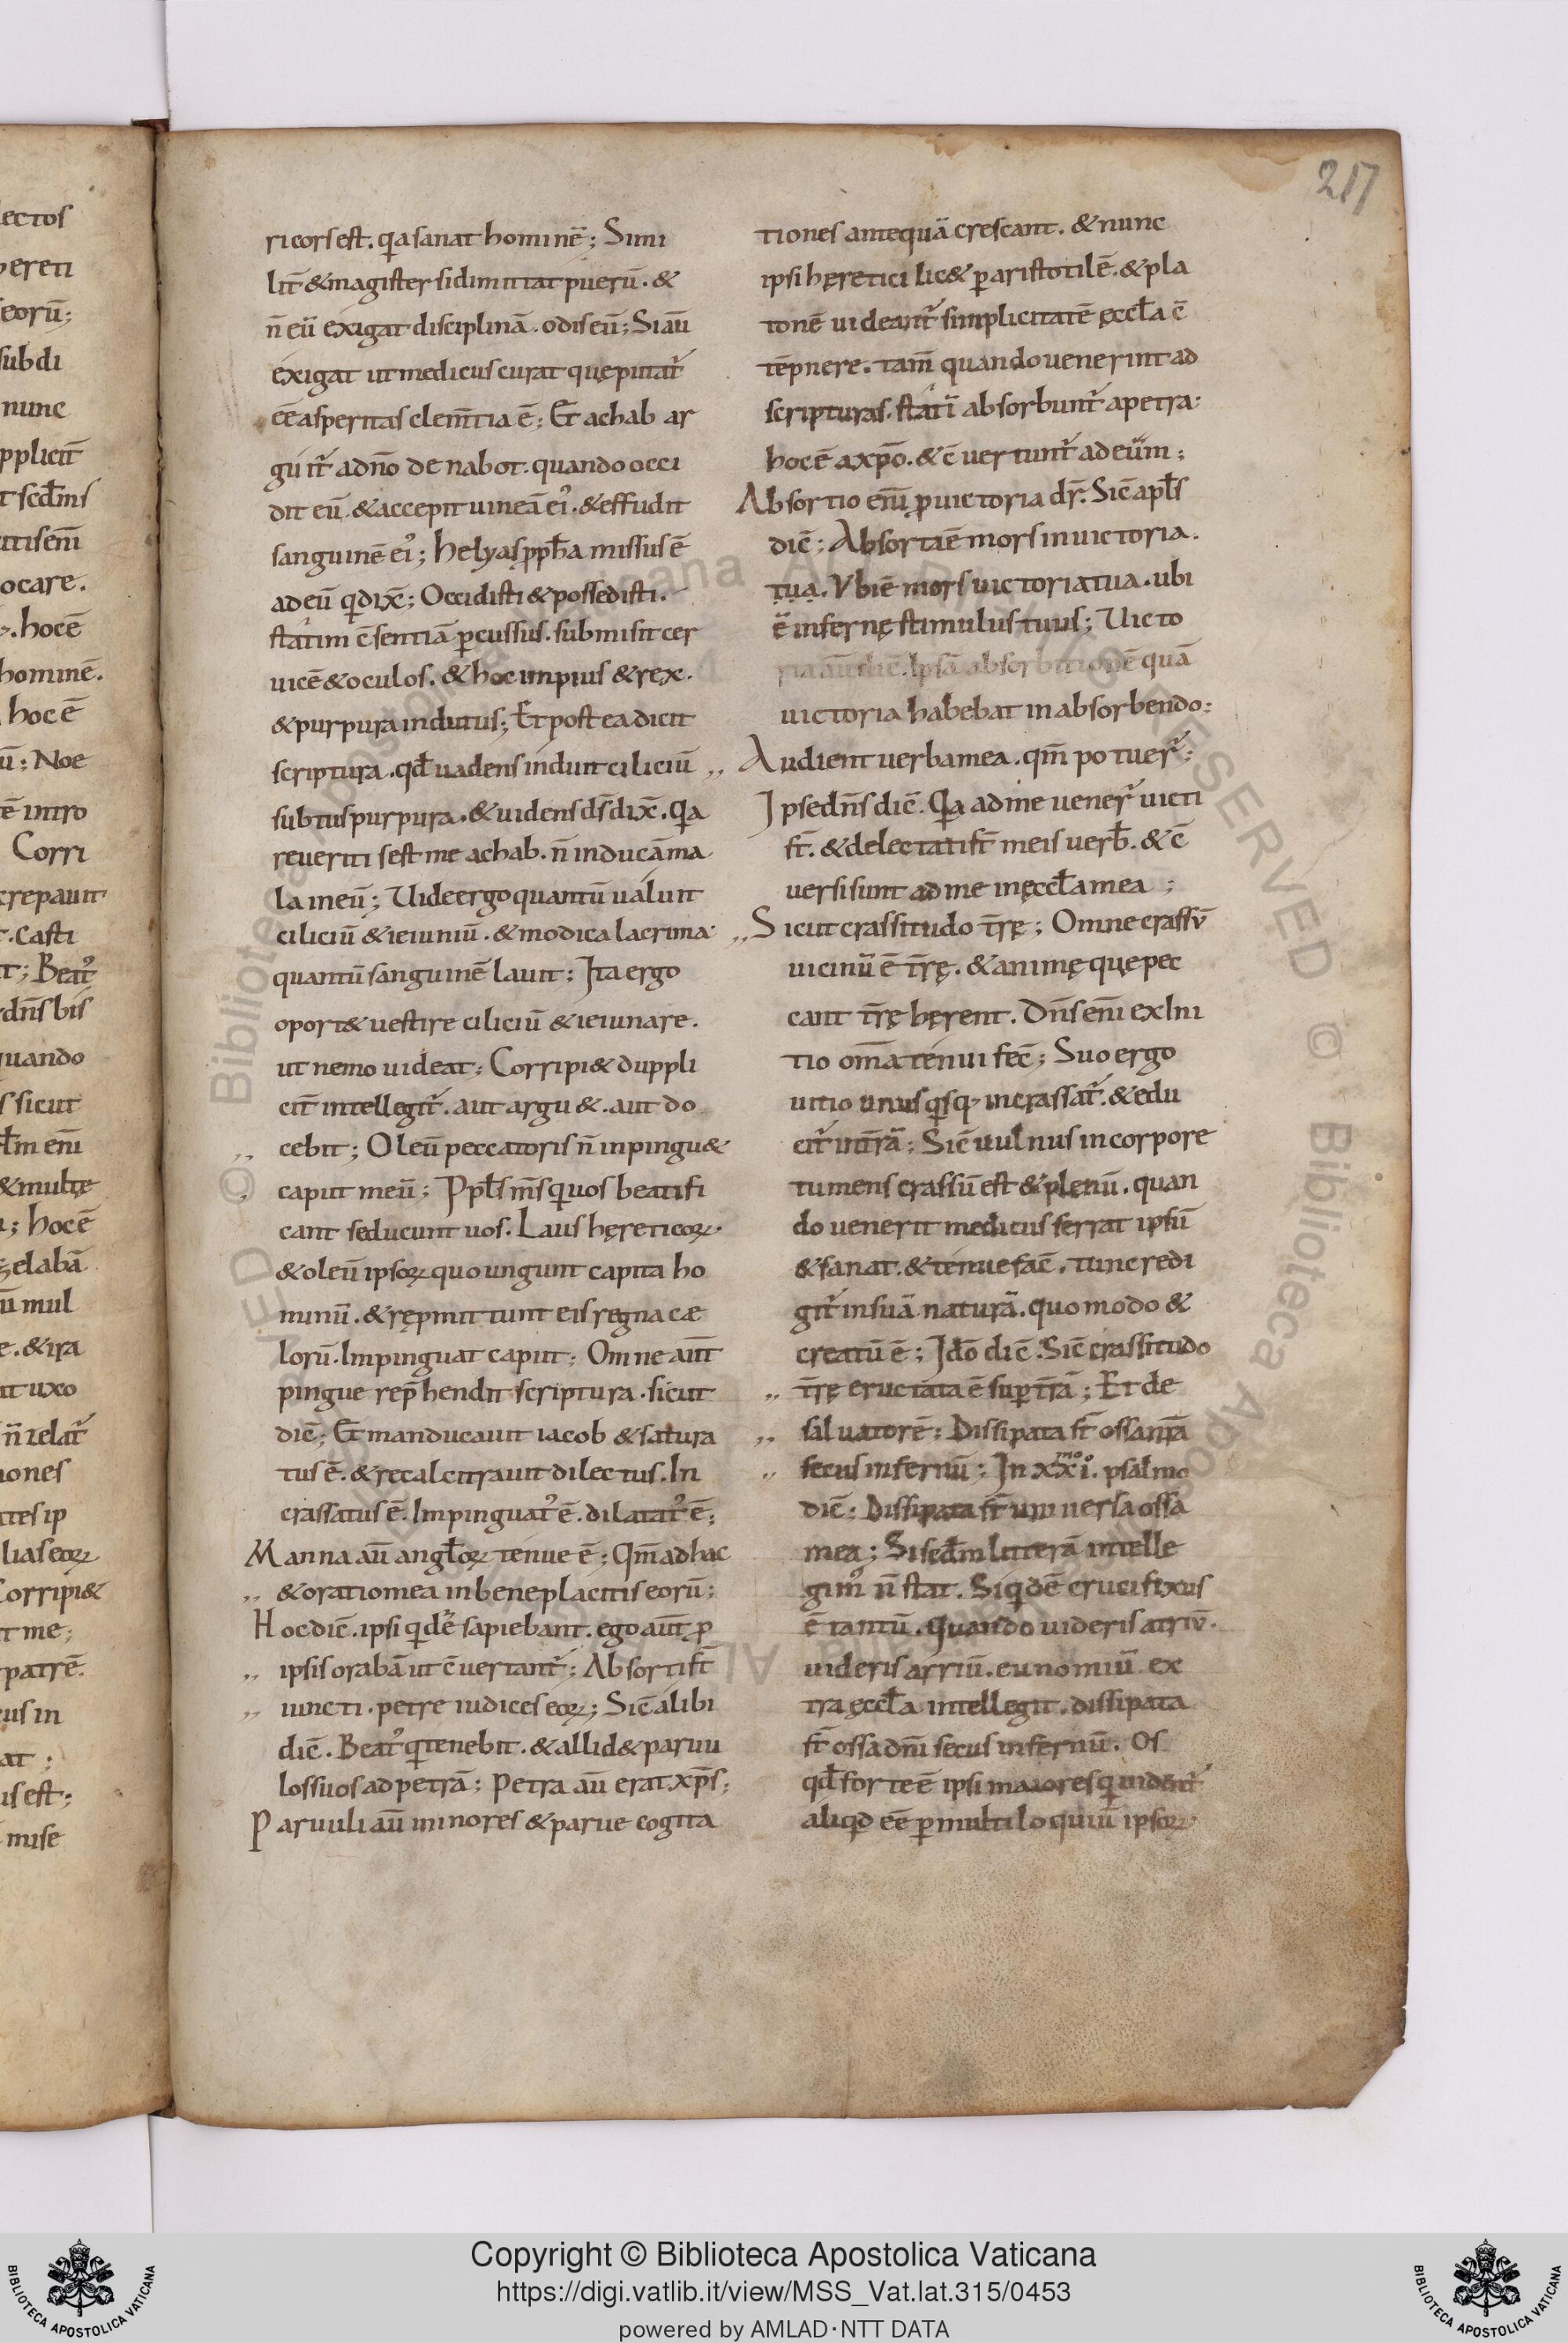 217
lectos
pereti
eorū;
subdi
nunc
pplicit̄
t scđms
titisenī
ocare.
. hocē
hominē.
hoc ē
ū; Noe
tē intro
Corri
crepauit
t. Casti
it; Beat᾽
dn̄s bis
quando
s sicut
đm enī
& multę
; hoc ē
zelabā
ū mul
e. & ira
it uxo
n̄ zelat᾽
iones
ites ip
lias eoꝝ
Corripi&
t me;
patrē.
us in
at;
is est;
mise
ricors est. qa sanat hominē; Simi
lit̄ & magister si dimittat puerū. &
n̄ eū exigat disciplinā. odis eū; Si aū
exigat ut medicus curat quę putat᾽
eē asperitas clem̄tia ē; Et achab ar
guit᾽ ad dn̄o de nabot. quando occi
dit eū. & accepit uineā ei᾽. & effudit
sanguinē ei᾽; helyas ꝓph̄a missus ē
ad eū qdix̄; Occidisti & possedisti.
statim c̄ sentiā ꝑcussus. submisit cer
uicē & oculos. & hoc impius & rex.
& purpura indutus; Et postea dicit
scriptura. qđ uadens induit ciliciū
subtus purpura. & uidens ds̄ dix̄. Qa
reueriti sest me achab. n̄ inducā ma
la in eū; Uide ergo quantū ualuit
ciliciū & ieiuniū. & modica lacrima
quantū sanguinē lauit; Ita ergo
oport& uestire ciliciū & ieiunare.
ut nemo uideat; Corripi& duppli
cit̄ intellegit᾽. aut argu&. aut do
,, cebit; Oleū peccatoris n̄ inpingu&
, caput meū; Ppl̄s m̄s quos beatifi
cant seducunt uos. Laus hęreticoꝝ.
& oleū ipsoꝝ quo ungunt capita ho
minū. & rępmittunt eis regna cæ
lorū. Impinguat caput; Omne aūt
pingue rep̄hendit scriptura. sicut
dic̄; Et manducauit iacob & satura
tus ē. & recalcitrauit dilectus. In
crassatus ē. Impinguat᾽ ē. dilatat᾽ ē;
Manna aū angl̄oꝝ tenue ē; Qm̄ adhac
,, & oratio mea in beneplacitis eorū;
Hoc dic̄. ipsi qidē sapiebant. ego aūt ꝓ
,, ipsis orabā ut c̄uertant᾽; Absorti st̄
,, iuncti. petre iudices eoꝝ; Sic̄ alibi
dic̄. Beat᾽ q tenebit. & allid& paruu
los suos ad petrā; Petra aū erat xp̄s;
Paruuli aū minores & parue cogita
tiones antequā crescant. & nunc
ipsi hęretici lic& ꝑ aristotilē. & pla
tonē uideant᾽ simplicitatē ęccl̄a c̄
tēpnere. tam̄ quando uenerint ad
scripturas. statī absorbunt᾽ a petra.
hoc ē a xp̄o. & c̄uertunt᾽ ad eūm;
Absortio enī ꝓ uictoria dr̄. Sic̄ apl̄s
dic̄; Absorta ē mors in uictoria.
tua. Ubi ē mors uictoria tua. ubi
ē infernę stimulus tuus; Uicto
ria aūt dic̄. Ipsā absorbitionē quā
uictoria habebat in absorbendo:
,, Audient uerba mea. qm̄ potuer᾽;
Ipse dn̄s dic̄. Qa ad me uener᾽ uicti
st̄. & delectati st̄ meis uerb̄. & c̄
uersi sunt ad me in ęccl̄a mea;
,, Sicut crassitudo tr̄ę; Omne crassū
uicinū ē tr̄ę. & animę quę pec
cant tr̄ę hęrent. Dn̄s enī ex Ini
tio om̄a tenui fec̄; Suo ergo
uitio unusqsq; incrassat᾽. & edu
cit᾽ in tr̄ā; Sic̄ uulnus in corpore
tumens crassū est & plenū. quan
do uenerit medicus serrat ipsū
& sanat. & tenue fac̄. tunc redi
git᾽ in suā naturā. quomodo &
creatū ē; Ido dic̄. Sic̄ crassitudo
,, tr̄ę eructata ē suꝑ tr̄ā; Et de
,, saluatorē; Dissipata st̄ ossa nr̄a
,, secus infernū; In xxi᾽mo. psalmo
dic̄; Dissipata st̄ uniuersa ossa
mea; Si secđm litterā intelle
gim᾽ n̄ stat. Siqdē crucifixus
ē tantū. Quando uideris atriū.
uideris arriū. eunomiū ex
tra ęccl̄a intellegit. dissipata
st̄ ossa dn̄i secus infernū. Os
qđ forte ē ipsi maiores q uident᾽
aliqd eē ꝑ multiloquiū ipsoꝝ
© Biblioteca Apostolica Vaticana ALL RIGHTS RESERVED
BIBLIOTECA APOSTOLICA VATICANA
Copyright © Biblioteca Apostolica Vaticana
https://digi.vatlib.it/view/MSS_Vat.lat.315/0453
powered by AMLAD·NTT DATA
BIBLIOTECA APOSTOLICA VATICANA